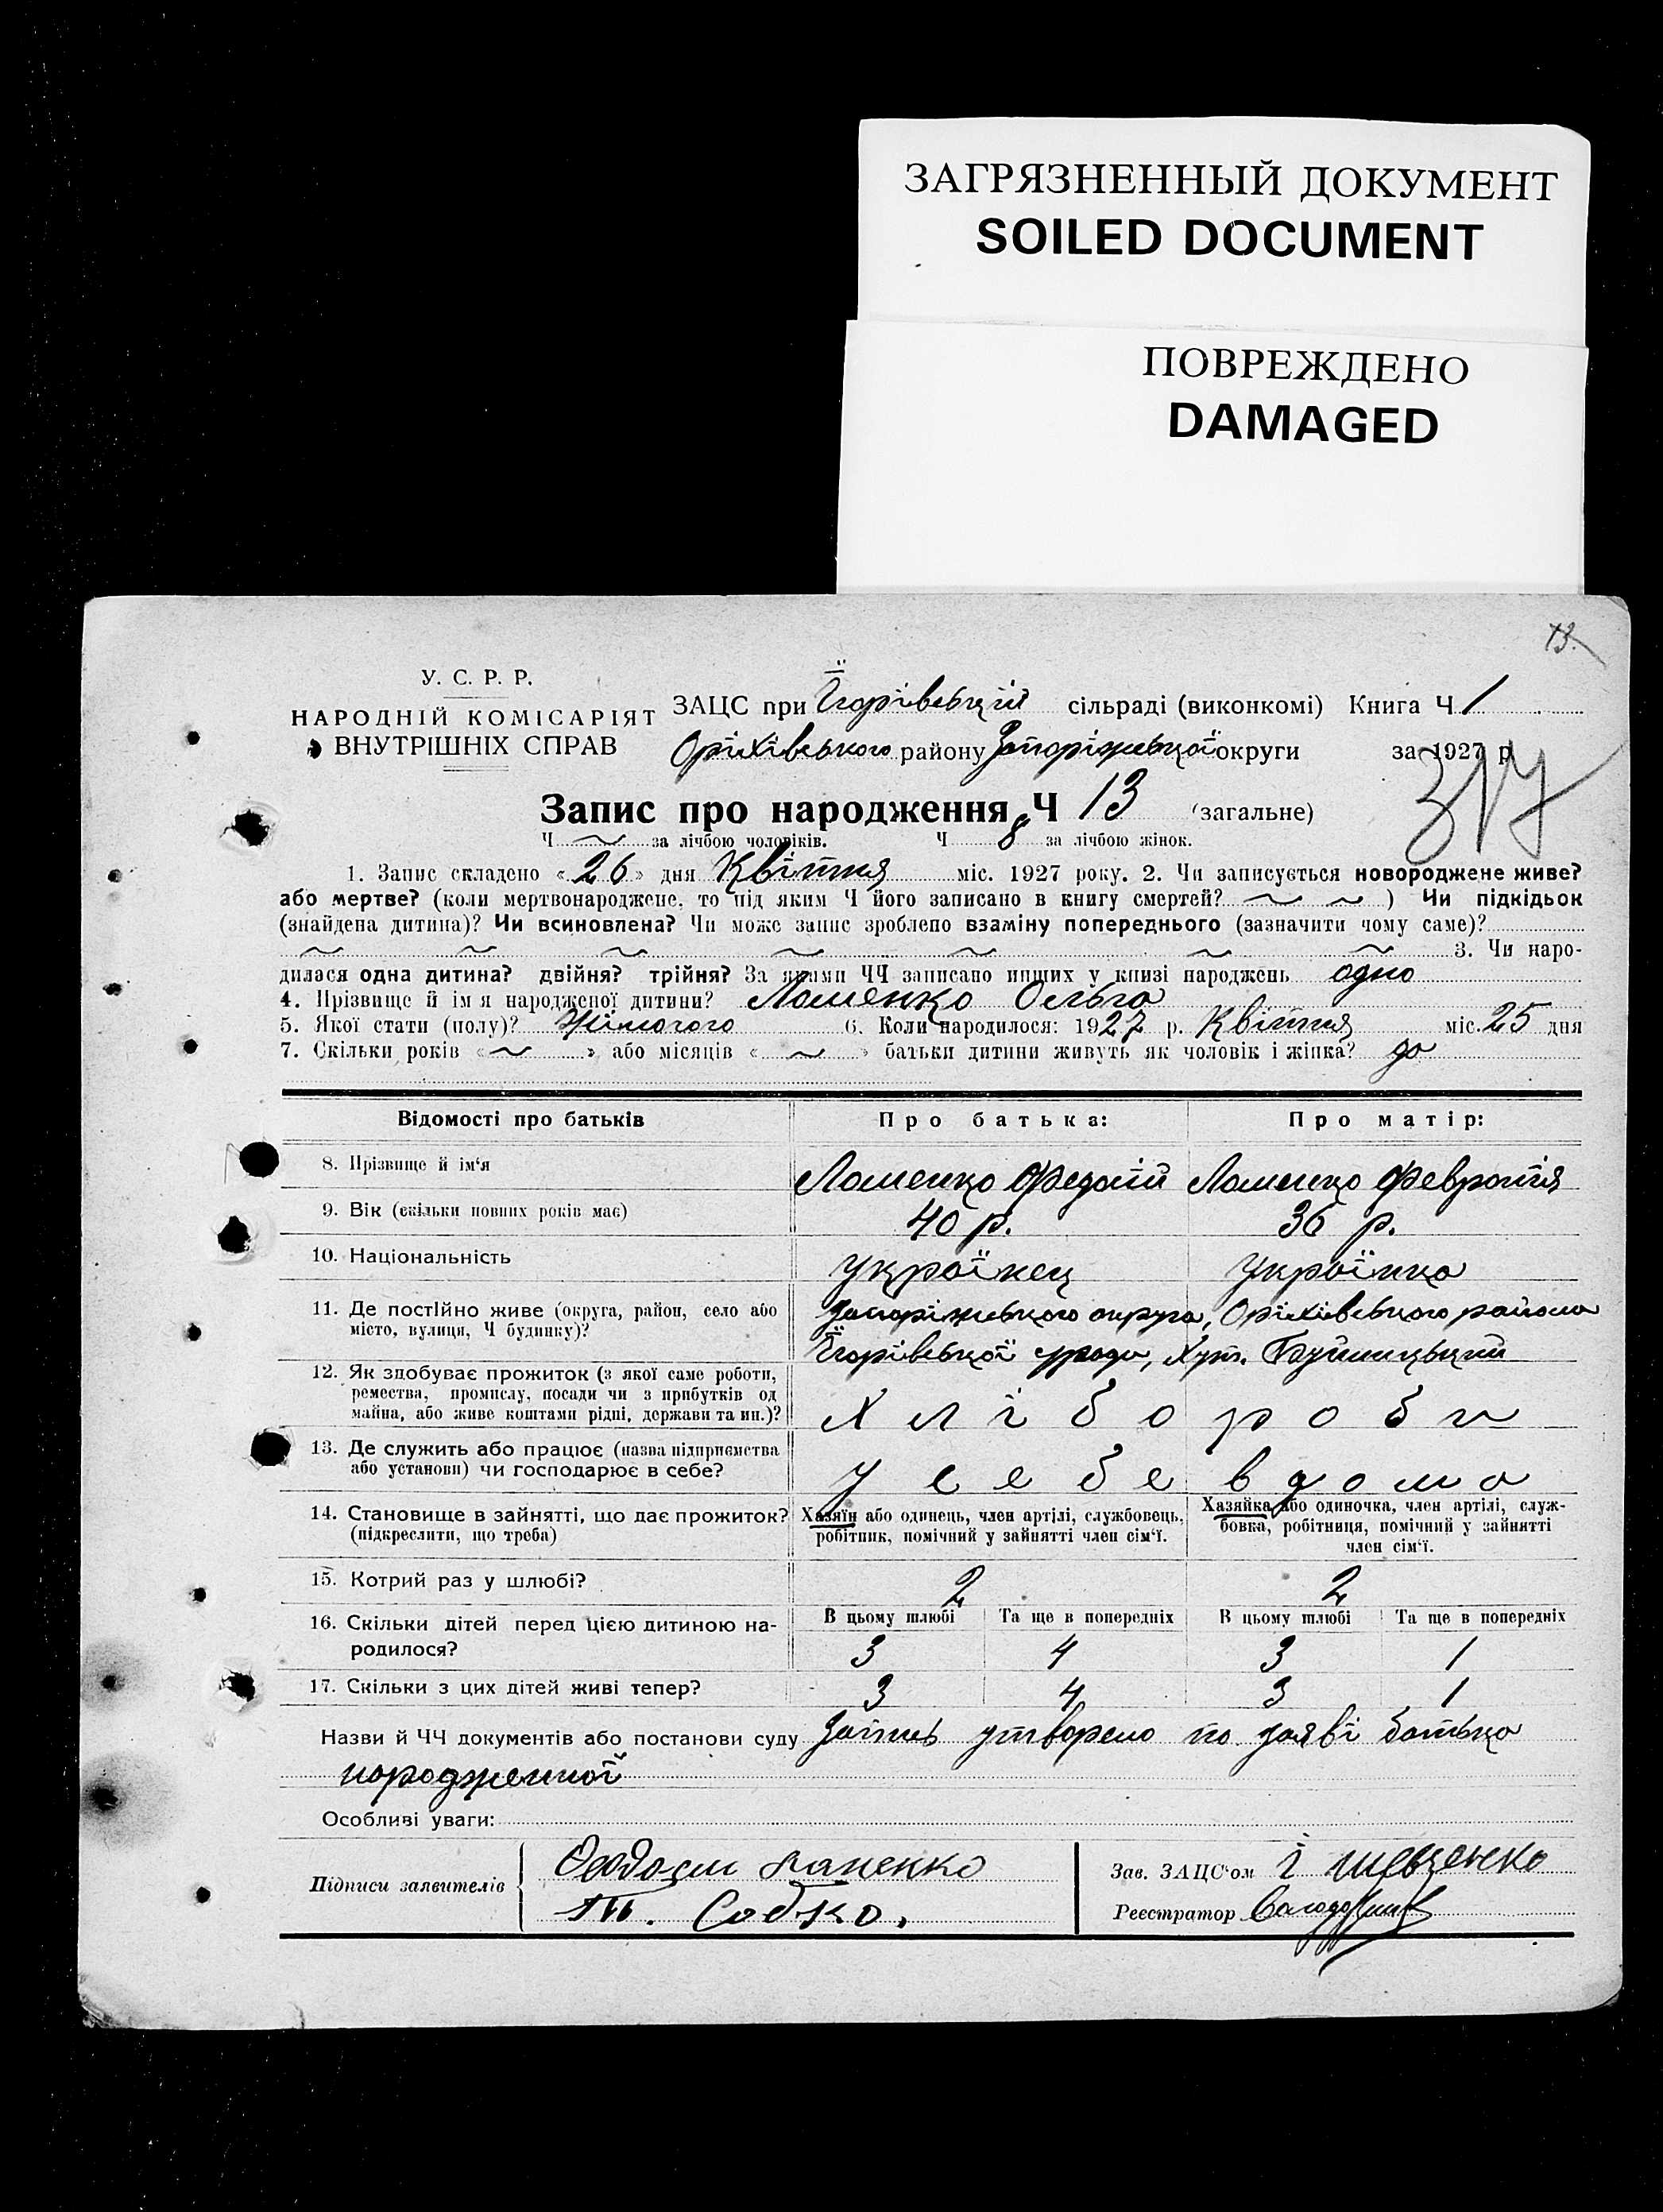 ЗАГРЯЗНЕННЫЙ ДОКУМЕНТ
SOILED DOCUMENT
ПОВРЕЖДЕНО
DAMAGED
13.
У. С. Р. Р.
НАРОДНІЙ КОМІСАРІЯТ
ВНУТРІШНІХ СПРАВ
ЗАЦС при Їгорівській сільраді (виконкомі) Книга Ч 1
Оріхівського району Запоріжської округи за 1927 р.
317
Запис про народження Ч 13 (загальне)
Ч ~ за лічбою чоловіків. Ч 8 за лічбою жінок.
1. Запис складено «26» дня Квітня міс. 1927 року. 2. Чи записується новороджене живе?
або мертве? (коли мертвонароджене, то під яким Ч його записано в книгу смертей? ~ ~ ) Чи підкідьок
(знайдена дитина)? Чи всиновлена? Чи може запис зроблено взаміну попереднього (зазначити чому саме)?
~ ~ ~ ~ ~ ~ ~ 3. Чи наро-
дилася одна дитина? двійня? трійня? За якими ЧЧ записано инших у книзі народжень одно
4. Прізвище й ім я народженої дитини? Лашенко Ольга
5. Якої стати (полу)? Жіночого 6. Коли народилося: 1927 р. Квітня міс. 25 дня
7. Скільки років «~» або місяців «~» батьки дитини живуть як чоловік і жінка? до
Відомості про батьків Про батька: Про матір:
8. Прізвище й ім‘я Лашенко Федосій Лашенко Февронія
9. Вік (скільки повних років має) 40 р. 36 р.
10. Національність Українец Українка
11. Де постійно живе (округа, район, село або
місто, вулиця, Ч будинку)?
Запоріжського округа, Оріхівського района
Їгорівської сільради, Хут.
12. Як здобуває прожиток (з якої саме роботи,
ремества, промислу, посади чи з прибутків од
майна, або живе коштами рідні, держави та ин.)?
Хлібороби
13. Де служить або працює (назва підприємства
або установи) чи господарює в себе?
У себе вдома
14. Становище в зайнятті, що дає прожиток?
(підкреслити, що треба)
Хазяїн або одинець, член артілі, службовець,
робітник, помічний у зайнятті член сім‘ї.
Хазяйка або одиночка, член артілі, служ-
бовка, робітниця, помічний у зайнятті
член сім‘ї.
15. Котрий раз у шлюбі? 2 2
16. Скільки дітей перед цією дитиною на-
родилося?
В цьому шлюбі Та ще в попередніх В цьому шлюбі Та ще в попередніх
3 4 3 1
17. Скільки з цих дітей живі тепер? 3 4 3 1
Назви й ЧЧ документів або постанови суду Запись утворено по заяві батька
народженної
Особливі уваги:
Підписи заявителів
Т. Собко.
Зав. ЗАЦС‘ом І Шевченко
Реєстратор